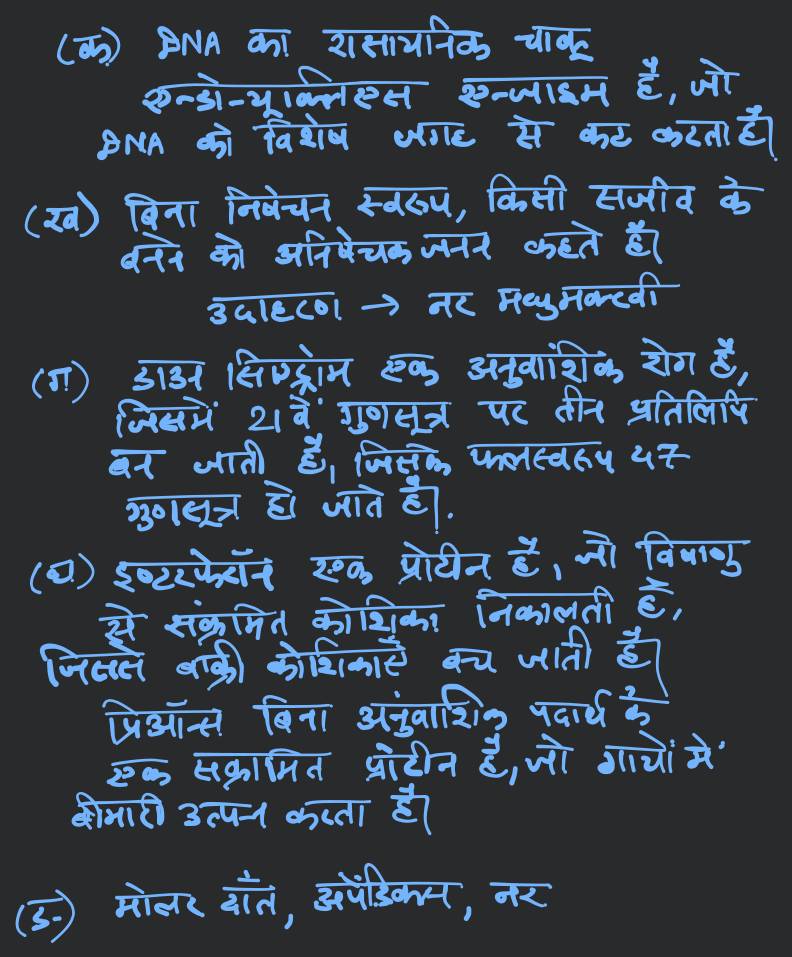 (क) DNA का रासायनिक चाकू
एन्डो-न्यूक्लिएस एन्जाइम है, जो
DNA को विशेष जगह से कट करता है।
(ख) बिना निषेचन स्वरूप, किसी सजीव के
बनने को अनिषेचक जनन कहते हैं।
उदाहरण → नर मधुमक्खी
(ग) डाउन सिण्ड्रोम एक अनुवांशिक रोग है,
जिसमें 21 वें गुणसूत्र पर तीन प्रतिलिपि
बन जाती है, जिसके फलस्वरूप 47
गुणसूत्र हो जाते हैं।.
(घ) इण्टरफेरॉन एक प्रोटीन है, जो विषाणु
से संक्रमित कोशिका निकालती है,
जिससे बाकी कोशिकाएँ बच जाती हैं।
प्रिऑन्स बिना अनुवांशिक पदार्थ के
एक सक्रामित प्रोटीन है, जो गायों में
बीमारी उत्पन करता है।
(ङ) मोलर दाँत, अपेंडिक्स, नर